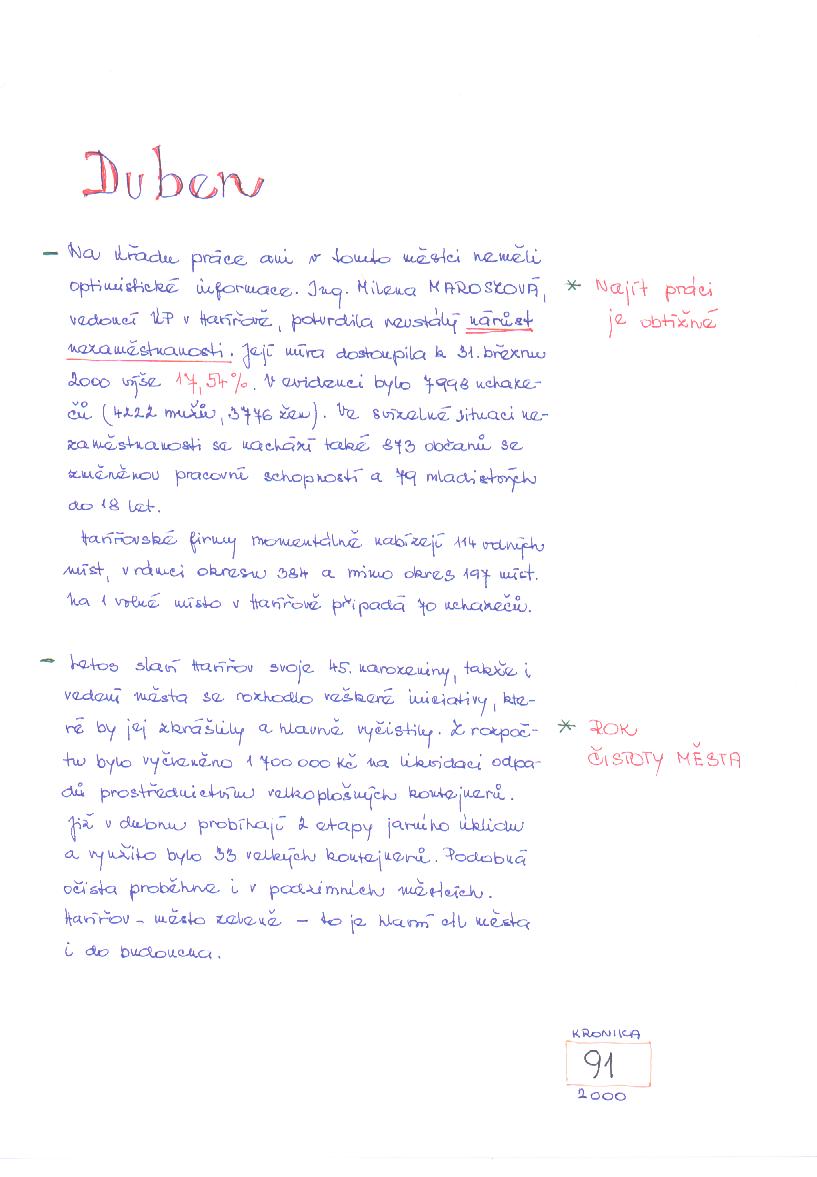 Duben
– Na Úřadu práce ani v tomto měsíci neměli
optimistické informace. Ing. Milena MAROSZOVÁ,
vedoucí ÚP v Havířově, potvrdila neustálý nárůst
nezaměstnanosti. Její míra dostoupila k 31. březnu
2000 výše 17,54%. V evidenci bylo 7998 uchaze-
čů (4222 mužů, 3776 žen). Ve svízelné situaci ne-
zaměstnanosti se nachází také 873 občanů se
změněnou pracovní schopností a 79 mladistvých
do 18 let.
* Najít práci
je obtížné
Havířovské firmy momentálně nabízejí 114 volných
míst, v rámci okresu 384 a mimo okres 197 míst.
Na 1 volné místo v Havířově připadá 70 uchazečů.
– Letos slaví Havířov svoje 45. narozeniny, takže i
vedení města se rozhodlo veškeré iniciativy, kte-
ré by jej zkrášlily a hlavně vyčistily. Z rozpoč-
tu bylo vyčleněno 1 700 000 Kč na likvidaci odpa-
dů prostřednictvím velkoplošných kontejnerů.
Již v dubnu probíhají 2 etapy jarního úklidu
a využito bylo 33 velkých kontejnerů. Podobná
očista proběhne i v podzimních měsících.
Havířov – město zeleně – to je hlavní cíl města
i do budoucna.
* ROK
ČISTOTY MĚSTA
KRONIKA
91
2000